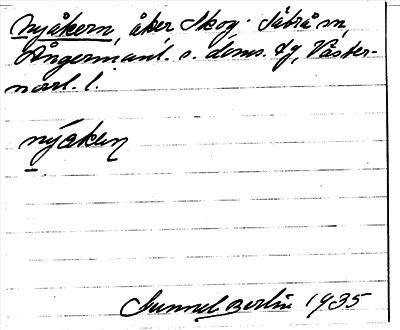 Nyåkern, åker, Skog. Säbrå sn,
Ångermanl. s. doms. fg, Väster-
norrl. l.
nýåkern
Gunnel Berlin 1935